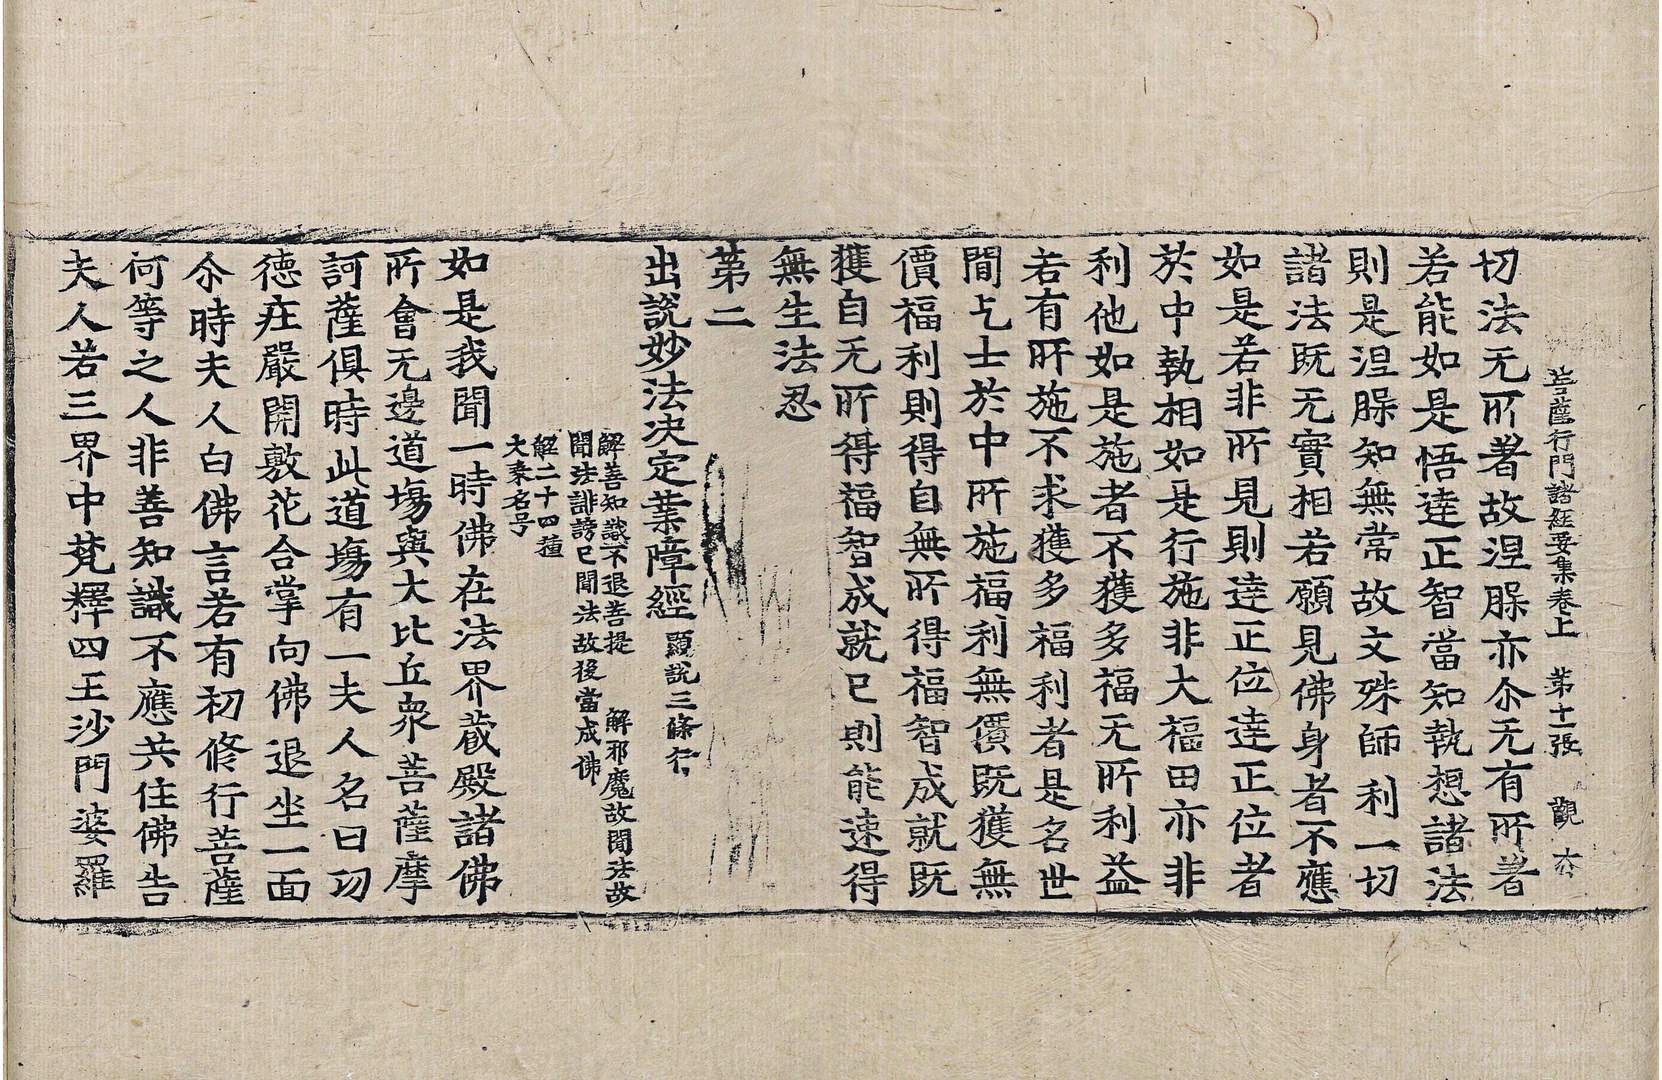 菩薩行門諸經要集卷上　第十一張　觀
切法无所著故涅槃亦尒无有所著
若能如是悟達正智當知執想諸法
則是涅槃知無常故文殊師利一切
諸法既无實相若願見佛身者不應
如是若非所見則達正位達正位者
於中執相如是行施非大福田亦非
利他如是施者不獲多福无所利益
若有所施不求獲多福利者是名世
間上士於中所施福利無價既獲無
價福利則得自無所得福智成就既
獲自无所得福智成就已則能速得
無生法忍
第二
出說妙法决定業障經　顯說三條行
解善知識不退菩提　解邪魔故聞法故
聞法誹謗已聞法故後當成佛
解二十四種
大乘名号
如是我聞一時佛在法界藏殿諸佛
所會无邊道塲與大比丘衆菩薩摩
訶薩俱時此道塲有一夫人名曰功
德莊嚴開敷花合掌向佛退坐一面
尒時夫人白佛言若有初修行菩薩
何等之人非善知識不應共住佛告
夫人若三界中梵釋四王沙門婆羅